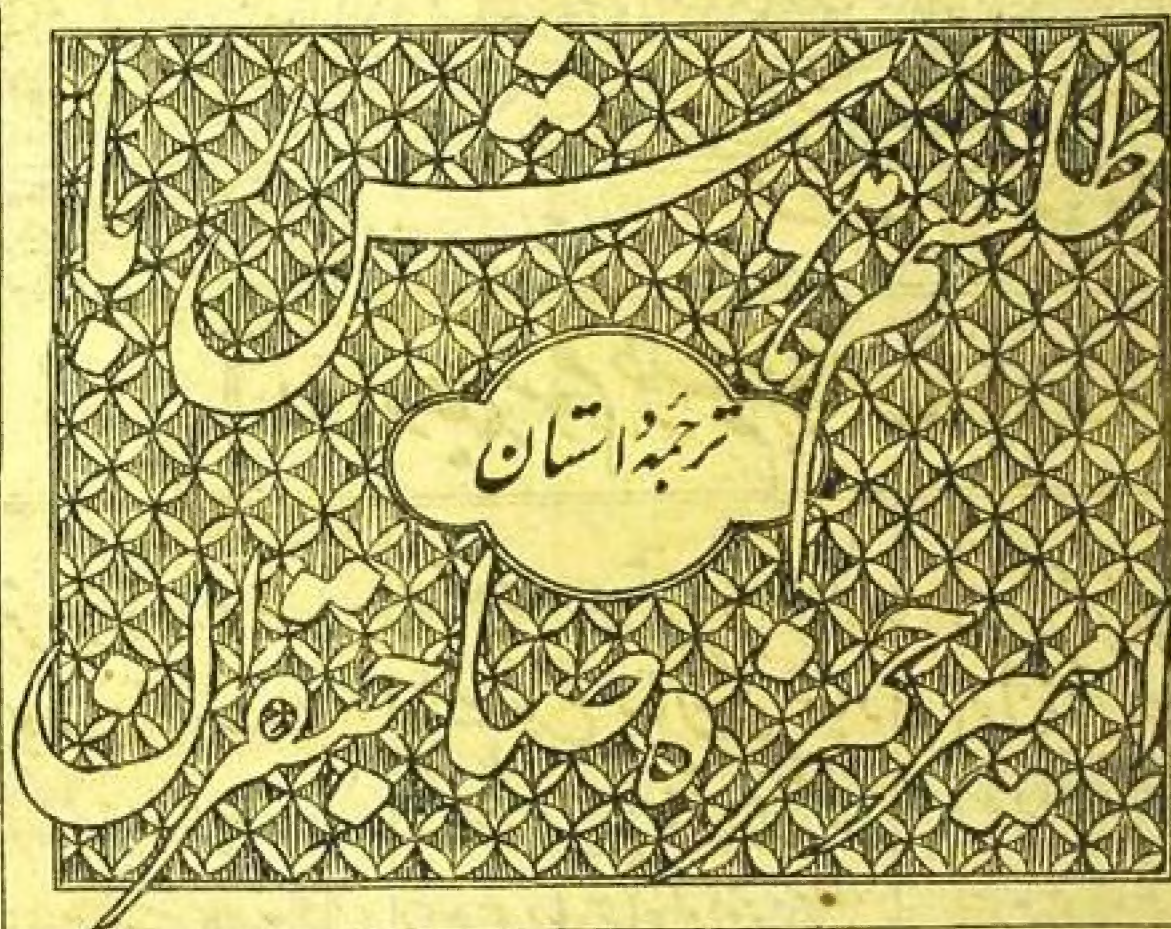 طلسم ہوش رُبا
ترجمۂ داستان
امیر حمزہ صاحبقران